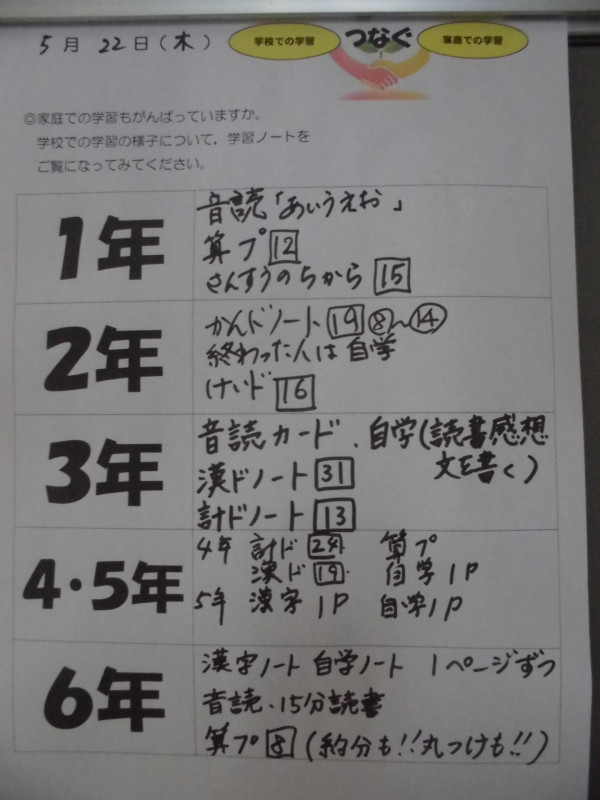 5月 22日(木)
学校での学習 つなぐ 家庭での学習
◎家庭での学習もがんばっていますか。
学校での学習の様子について,学習ノートを
ご覧になってみてください。
1年
音読「あいうえお」
算プ 12
さんすうのちから 15
2年
かんドノート 19 ⑧~⑭
終わった人は自学
けいド 16
3年
音読カード、自学(読書感想
文を書く)
漢ドノート 31
計ドノート 13
4・5年
4年 計ド 24 算プ
漢ド 19 自学1P
5年 漢字1P 自学1P
6年
漢字ノート 自学ノート 1ページずつ
音読・15分読書
算プ 8 (約分も!!丸つけも!!)